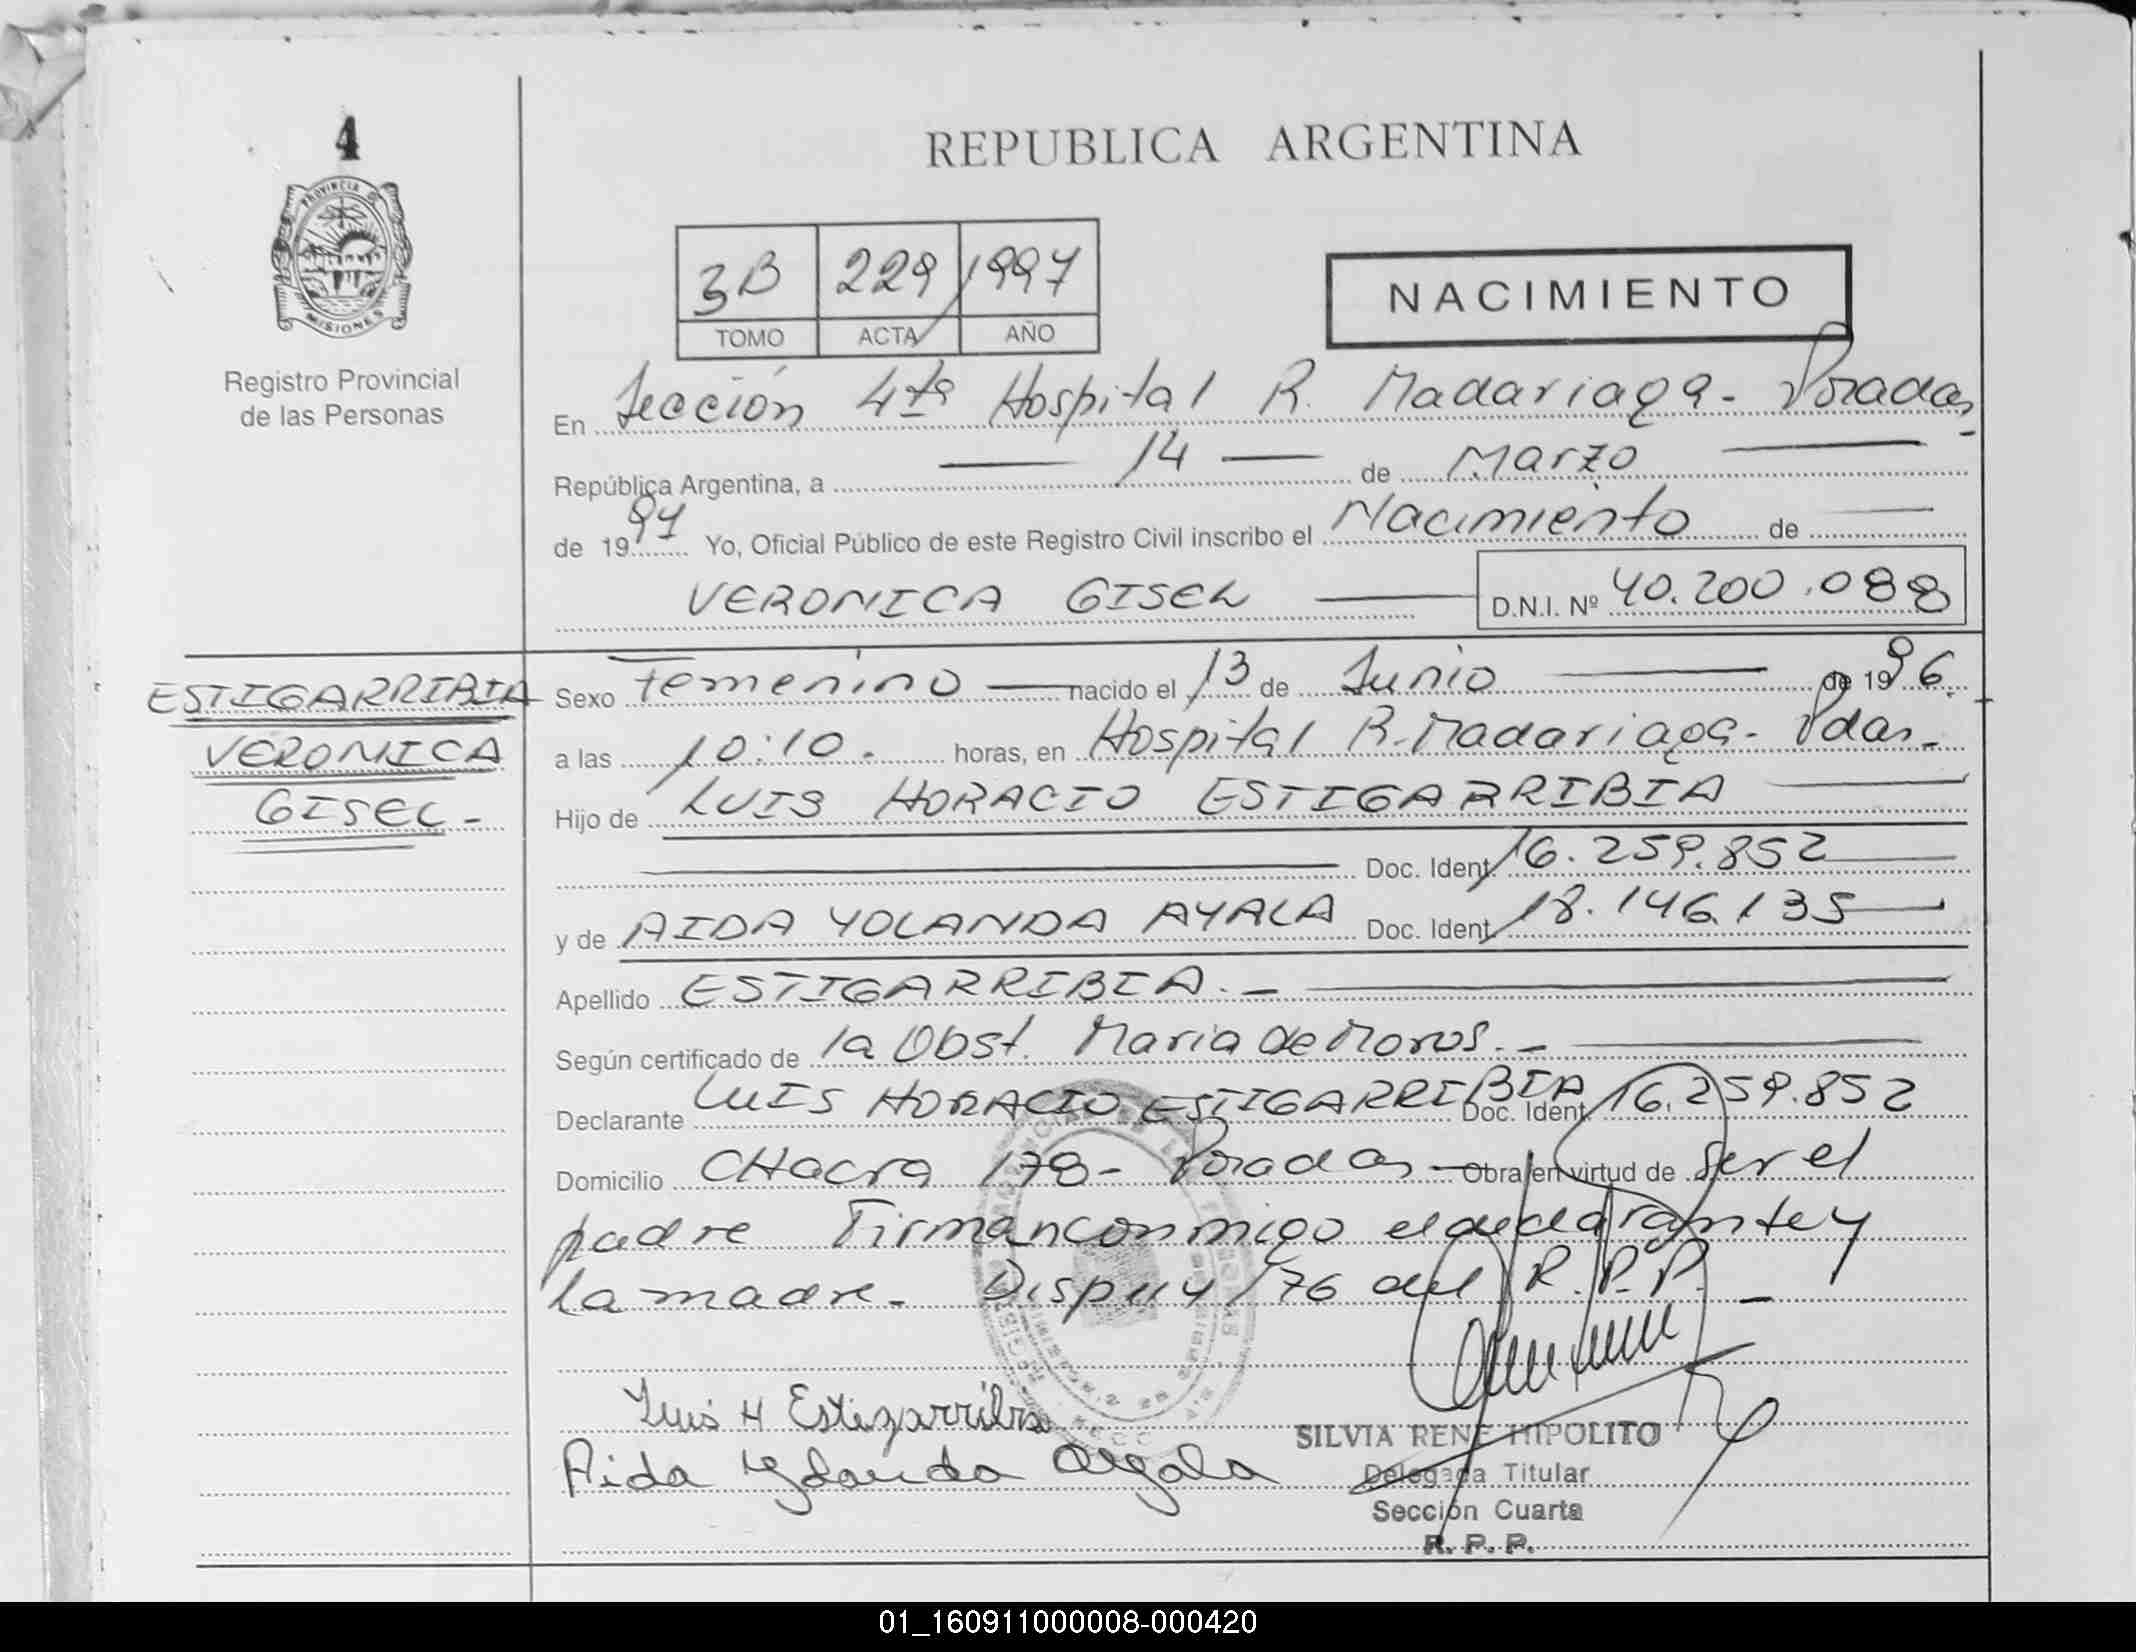 4
PROVINCIA DE
MISIONES
Registro Provincial
de las Personas
REPUBLICA ARGENTINA
3B 229 1997
TOMO ACTA AÑO
NACIMIENTO
En Sección 4ta Hospital R. Madariaga - Posadas
República Argentina, a 14 de Marzo
de 1997 Yo, Oficial Público de este Registro Civil inscribo el Nacimiento de
VERONICA GISEL D.N.I. Nº 40.200.088
ESTIGARRIBIA
VERONICA
GISEL -
Sexo Femenino nacido el 13 de Junio de 1996.
a las 10:10. horas, en Hospital R. Madariaga - Pdas. -
Hijo de LUIS HORACIO ESTIGARRIBIA
Doc. Ident. 16.259.852
y de AIDA YOLANDA AYALA Doc. Ident. 18.146.135
Apellido ESTIGARRIBIA. -
Según certificado de la Obst. Maria de Moros. -
Declarante LUIS HORACIO ESTIGARRIBIA Doc. Ident. 16.259.852
Domicilio CHacra 178 - Posadas Obra en virtud de Ser el
padre Firman conmigo el declarante y
la madre. 4/76 del R.P.P. -
Luis H Estigarribia
Aida Yolanda Ayala
SILVIA RENE HIPOLITO
Delegada Titular
Sección Cuarta
R. P. P.
01_160911000008-000420